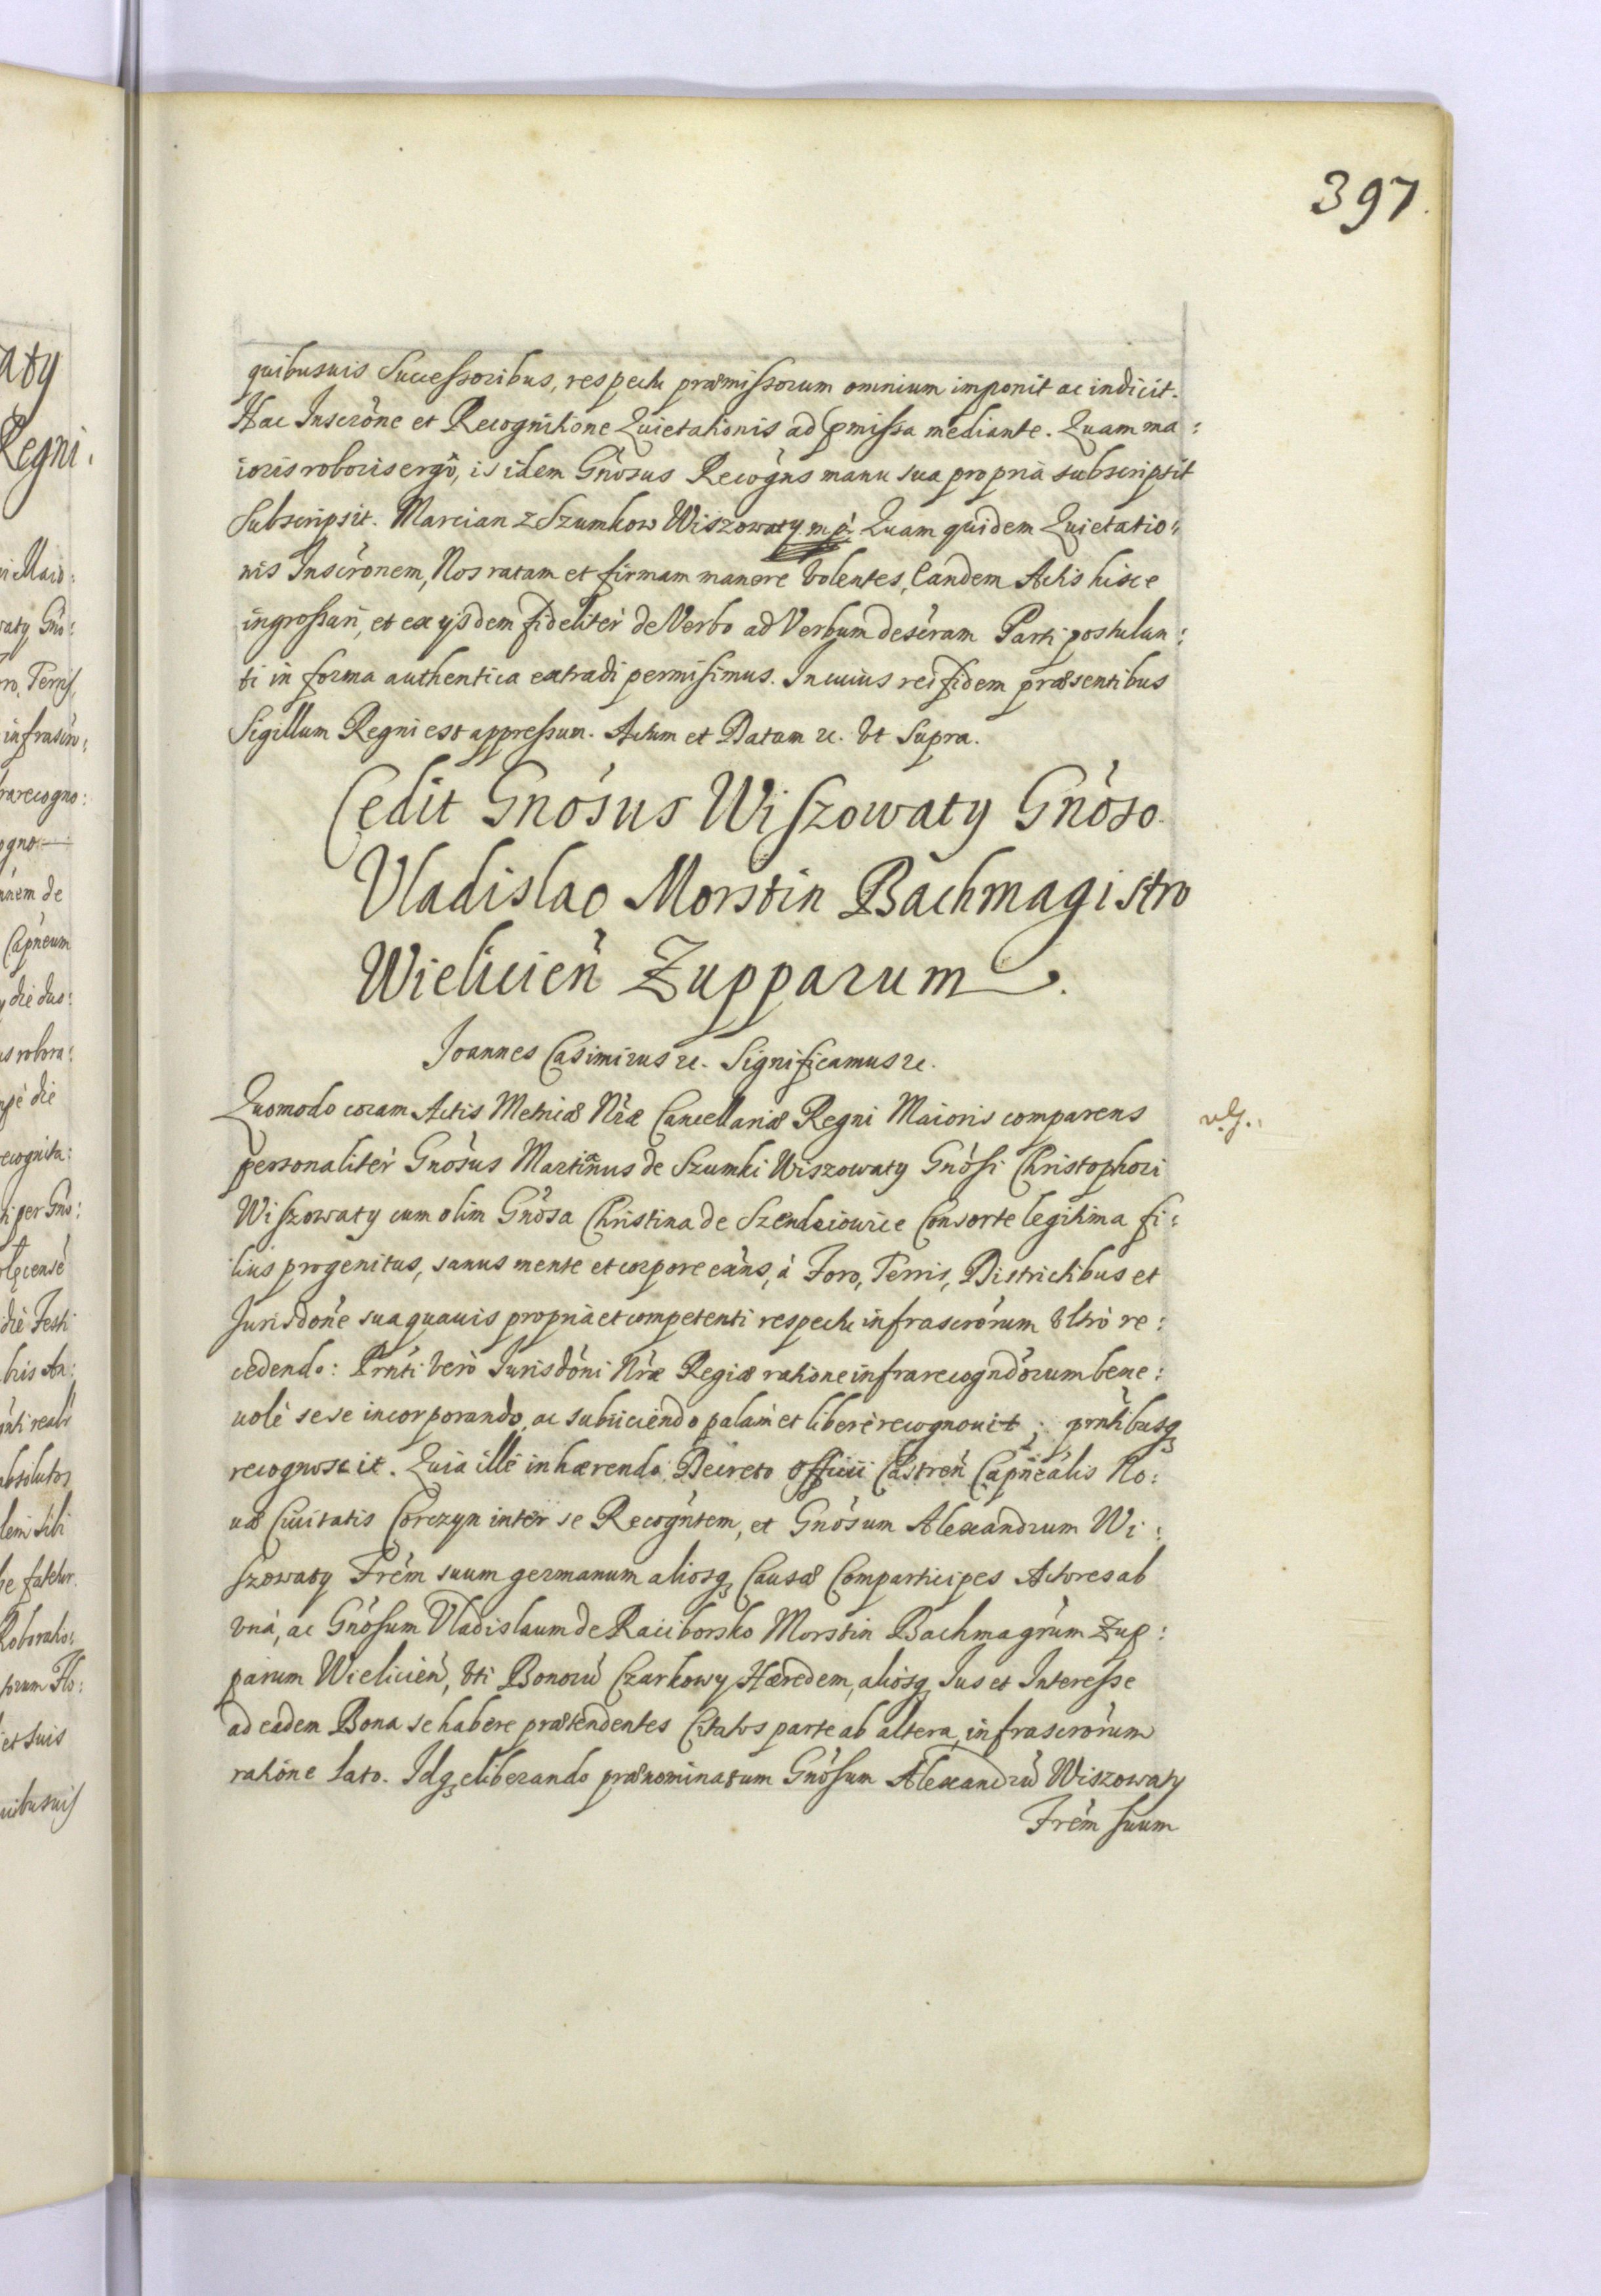 397.
quibusuis Successoribus, respectu præmissorum omnium imponit ac indicit.
Hac Inscrône et Recognitione Quietationis ad pmissa mediante. Quam ma:
ioris roboris ergô, is idem Gnôsus Recogns manu sua propria subscripsit
Subscripsit. Marcian z Szumkow Wiszowaty mp. Quam quidem Quietatio:
nis Inscrônem, Nos ratam et firmam manere volentes, Eandem Actis hisce
ingrossari, et ex ijsdem fideliter de Verbo ad Verbum deseram Parti postulan:
ti in forma authentica extradi permisimus. In cuius rei fidem præsentibus
Sigillum Regni est appressum. Actum et Datum &c. vt Supra.
Cedit Gnôsus Wiszowaty Gnôso
Vladislao Morstin Bachmagistro
Wielicień Zupparum.
Joannes Casimirus &c. Significamus &c.
Quomodo coram Actis Metricæ Nræ Cancellariæ Regni Maioris comparens
personaliter Gnôsus Martianus de Szumki Wiszowaty Gnôsi Christophori
Wiszowaty cum olim Gnôsa Christina de Consorte legitima fi:
lius progenitus, sanus mente et corpore exńs, à Foro, Terris, Districtibus et
Jurisdône sua quauis propria et competenti respectu infrascrôrum vltrò re:
cedendo: Prńti verò Jurisdôni Nræ Regiæ ratione infrarecogndôrum bene:
uolè sese incorporando, ac subiiciendo palàm et liberè recognouit; prńtibusq
recognoscit. Quia ille inhærendo Decreto Officii Castreń Capnêalis No:
uæ Ciuitatis Corczyn inter se Recogńtem, et Gnôsum Alexandrum Wi:
szowaty Frêm suum germanum aliosq Causæ Comparticipes Actores ab
vna, ac Gnôsum Vladislaum de Raciborsko Morstin Bachmagrûm Zup:
parum Wielicień, vti Bonorũ Czarkowy Hæredem, aliosq Jus et Interesse
ad eadem Bona se habere prætendentes Citatos parte ab altera, infrascrôrum
ratiône lato. Idq eliberando prænominatum Gnôsum Alexandrũ Wiszowaty
Frêm suum